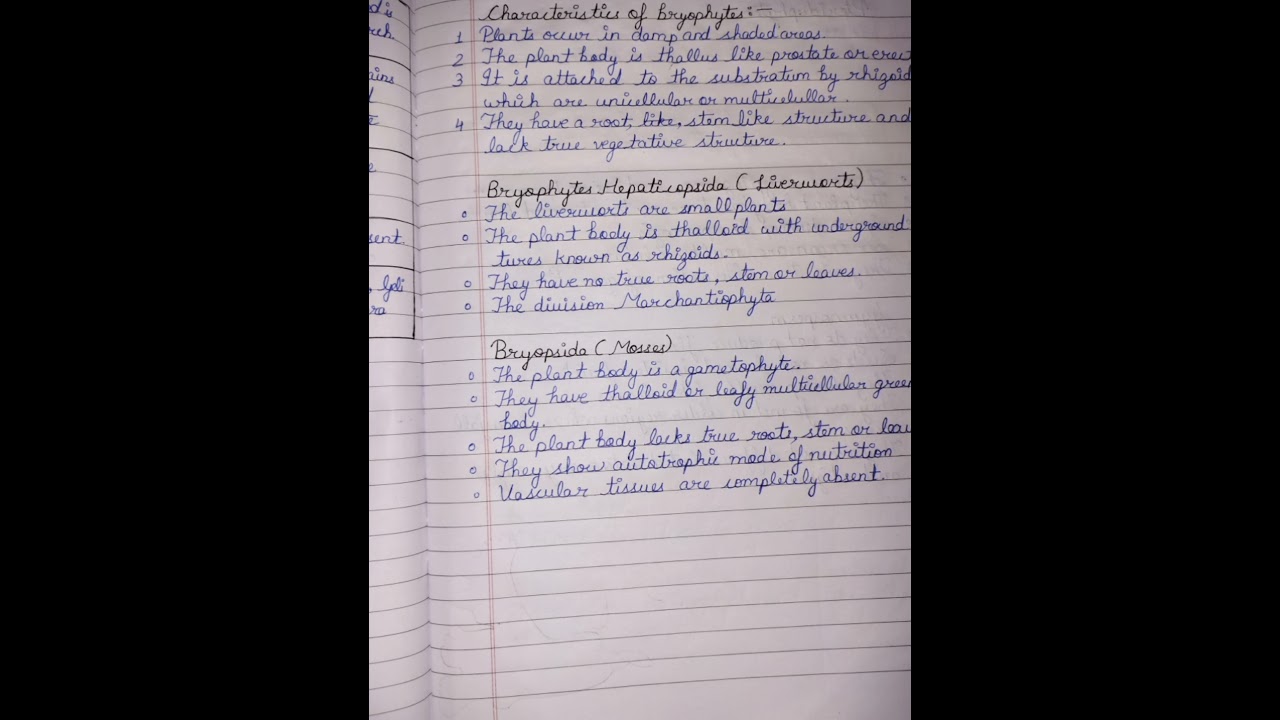 d is
rch.
ains
sent.
, Goli
ra
Characteristics of Bryophytes:-
1 Plants occur in damp and shaded areas.
2 The plant body is thallus like prostate or erec
3 It is attached to the substratum by rhizoid
which are unicellular or multicelullar.
4 They have a root, like, stem like structure and
lack true vegetative structure.
Bryophytes Hepaticopsida (Liverworts)
o The liverworts are small plants
o The plant body is thalloid with underground
tures known as rhizoids.
o They have no true roots, stem or leaves.
o The division Marchantiophyta
Bryopsida (Mosses)
o The plant body is a gametophyte.
o They have thalloid or leafy multicellular gree
body.
o The plant body lacks true roots, stem or leav
o They show autotrophic mode of nutrition
o Vascular tissues are completely absent.